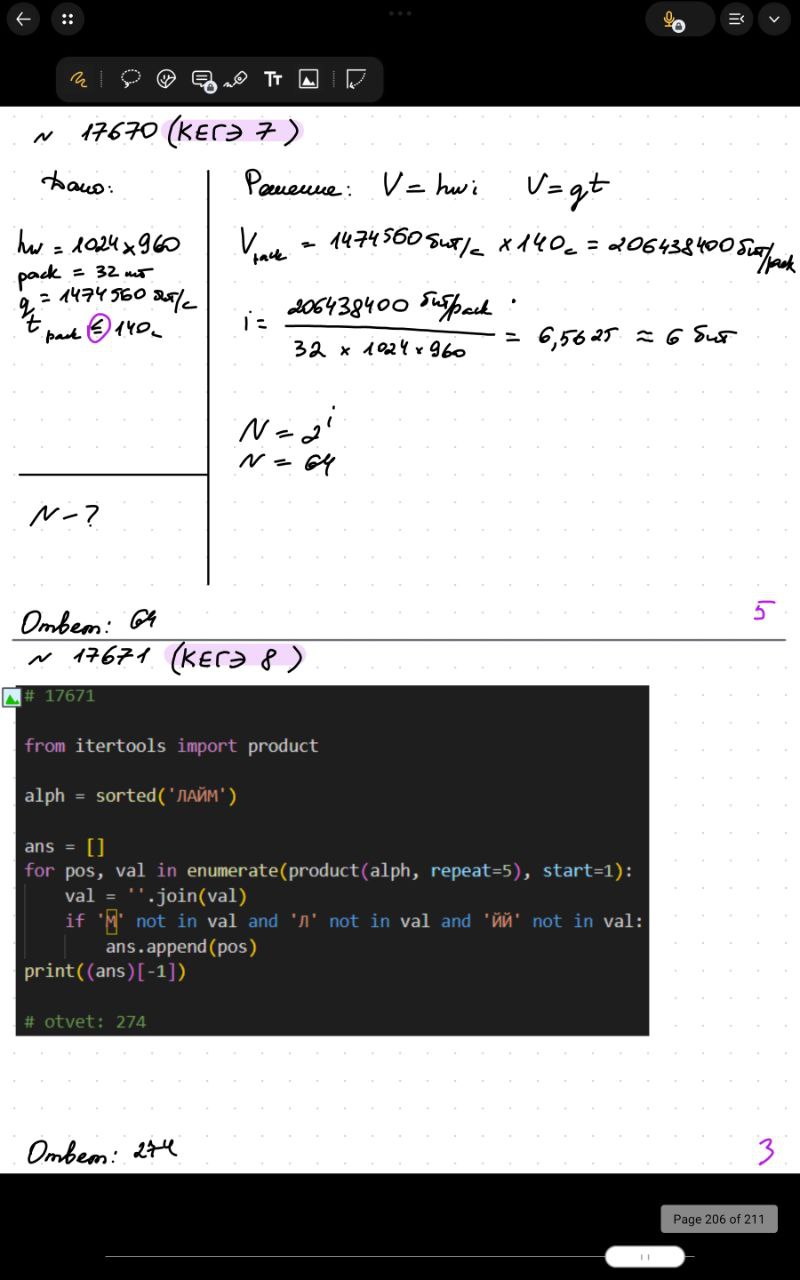 Tт
N 17670 (КЕГЭ 7)
Дано:
hw = 1024 × 960
pack = 32 шт
q = 1474560 бит/с
t pack ≤ 140с
N - ?
Решение: V = hwi V = qt
V pack = 1474560 бит/с × 140с = 206438400 бит/pack
i = 206438400 бит/pack
32 × 1024 × 960
= 6,5625 ≈ 6 бит
N = 2^i
N = 64
Ответ: 64
5
N 17671 (КЕГЭ 8)
# 17671
from itertools import product
alph = sorted('ЛАЙМ')
ans = []
for pos, val in enumerate(product(alph, repeat=5), start=1):
val = ''.join(val)
if 'М' not in val and 'Л' not in val and 'ЙЙ' not in val:
ans.append(pos)
print((ans)[-1])
# otvet: 274
Ответ: 274
3
Page 206 of 211